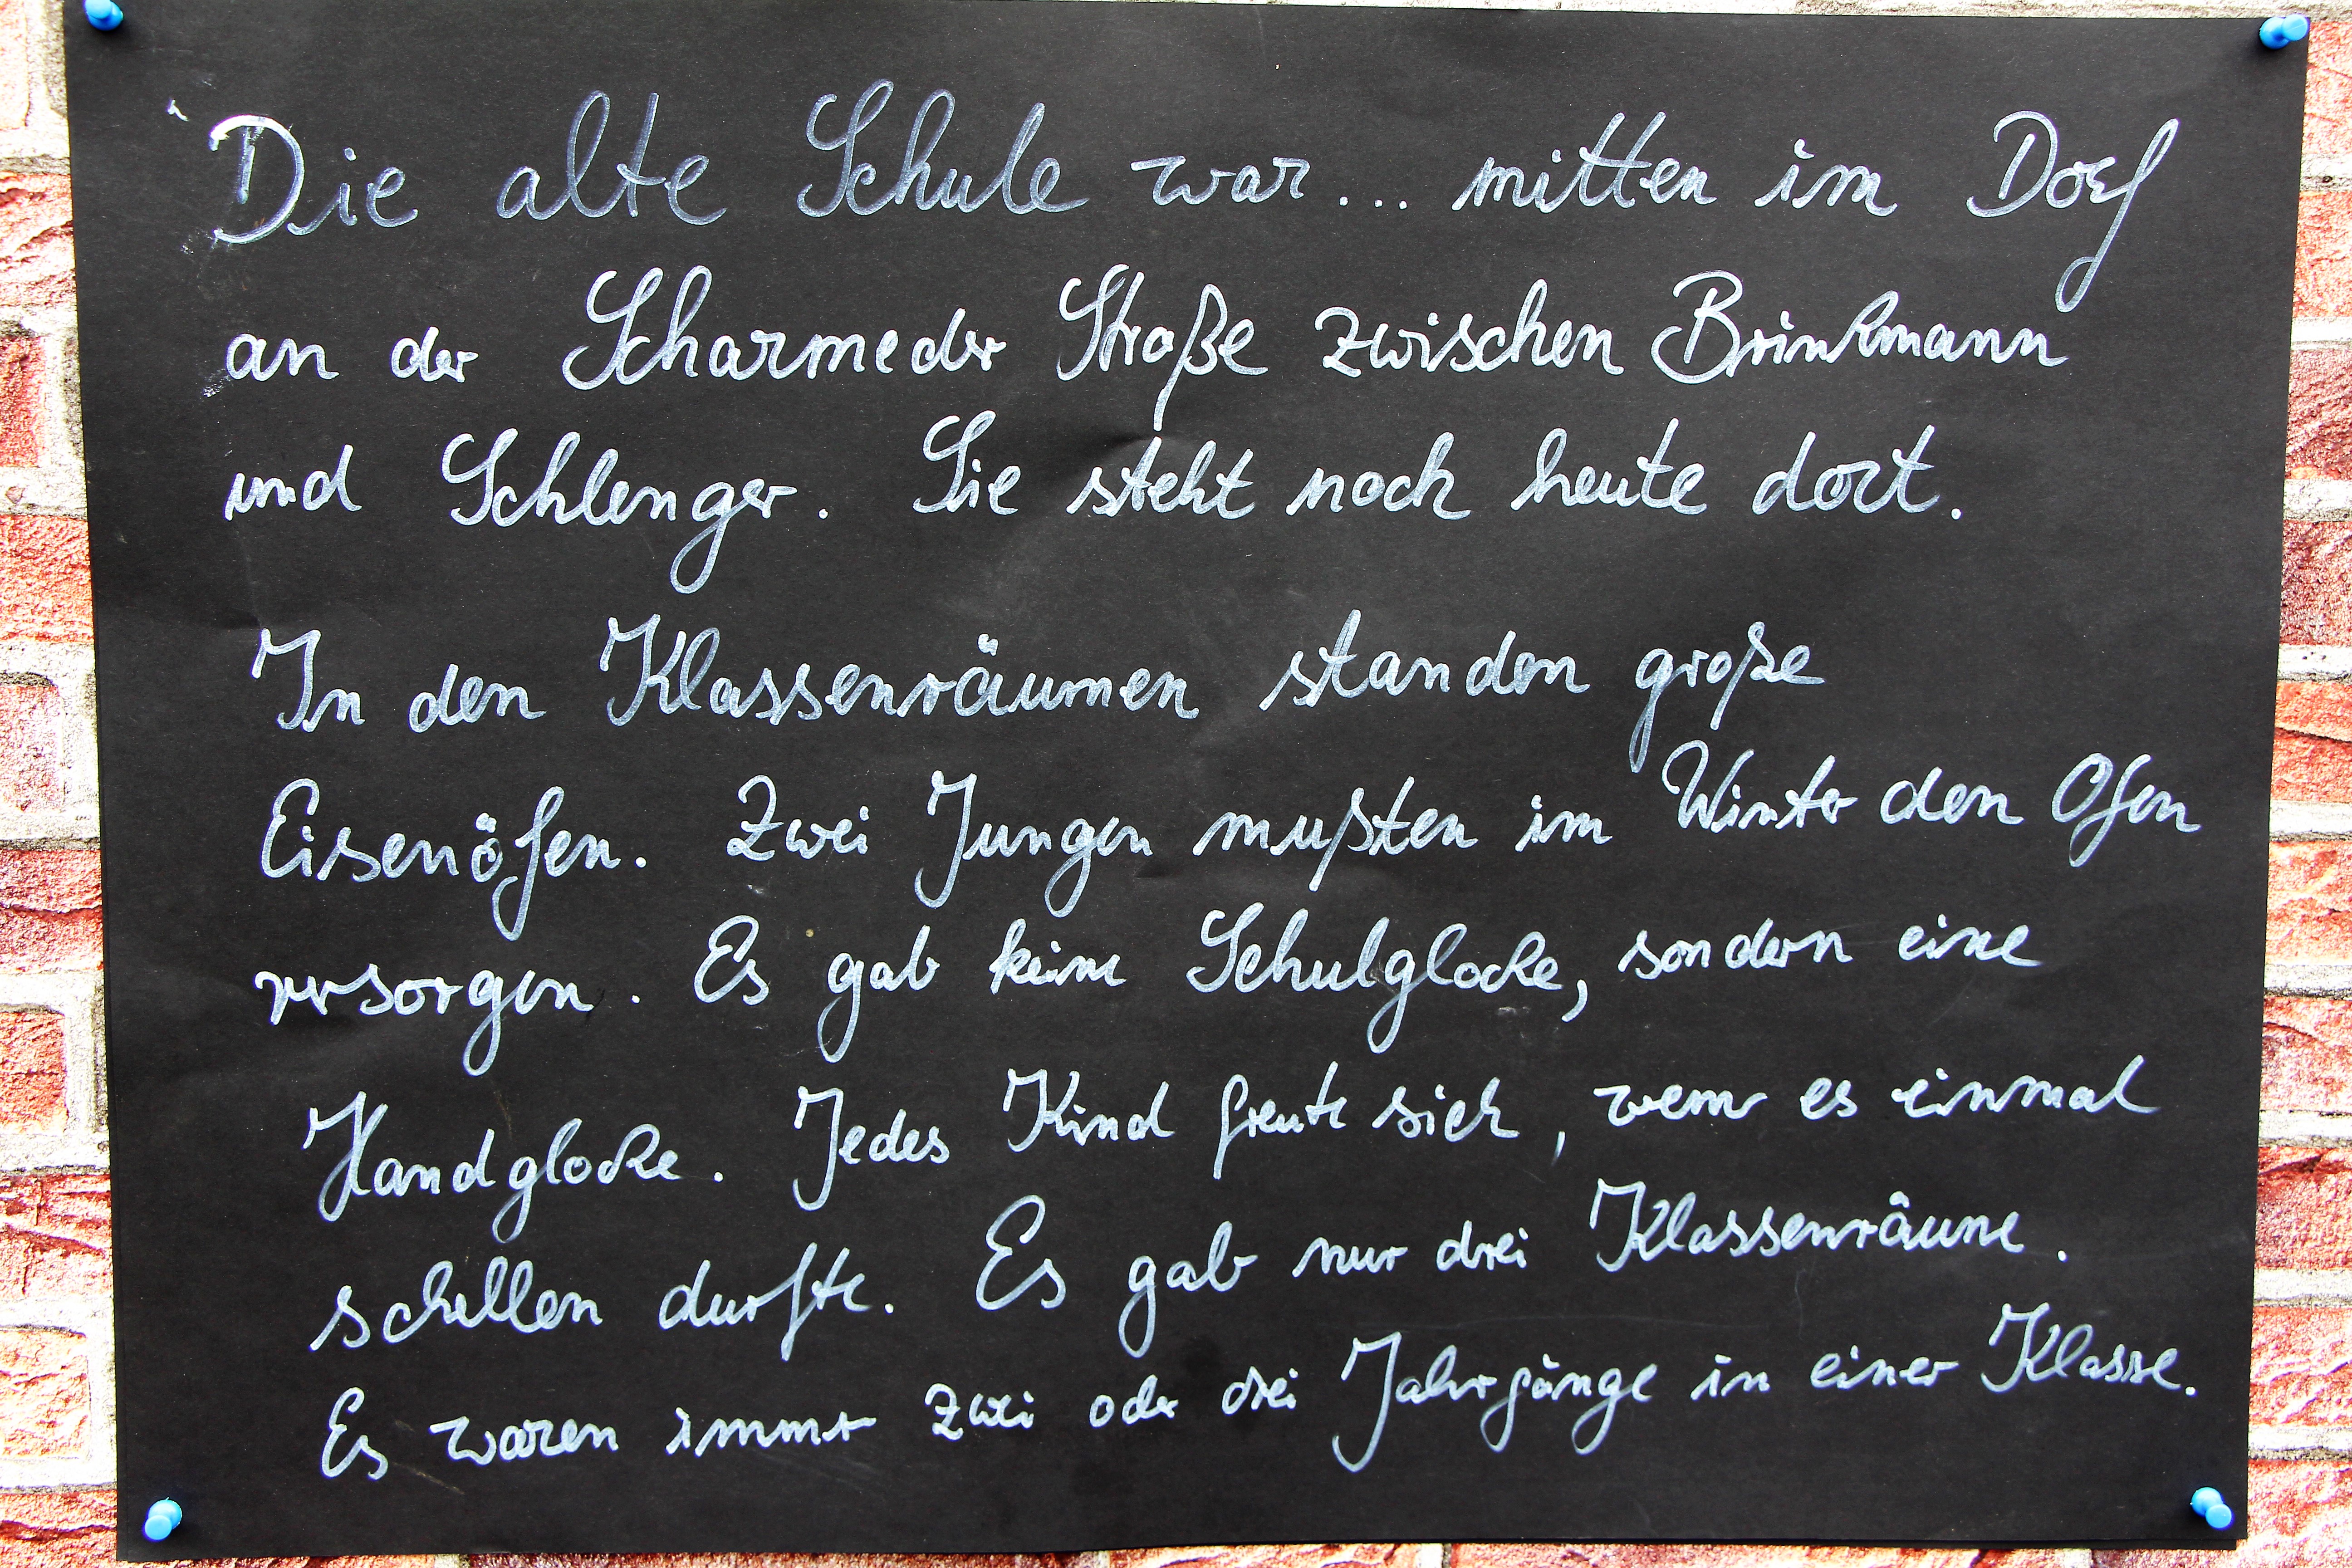 Die alte Schule war... mitten im Dorf
an der Scharmeder Straße zwischen Brinkmann
und Schlenger. Sie steht noch heute dort.
In den Klassenräumen standen große
Eisenöfen. Zwei Jungen mußten im Winter den Ofen
versorgen. Es gab keine Schulglocke, sondern eine
Handglocke. Jedes Kind freute sich, wenn es einmal
schellen durfte. Es gab nur drei Klassenräume.
Es waren immer zwei oder drei Jahrgänge in einer Klasse.